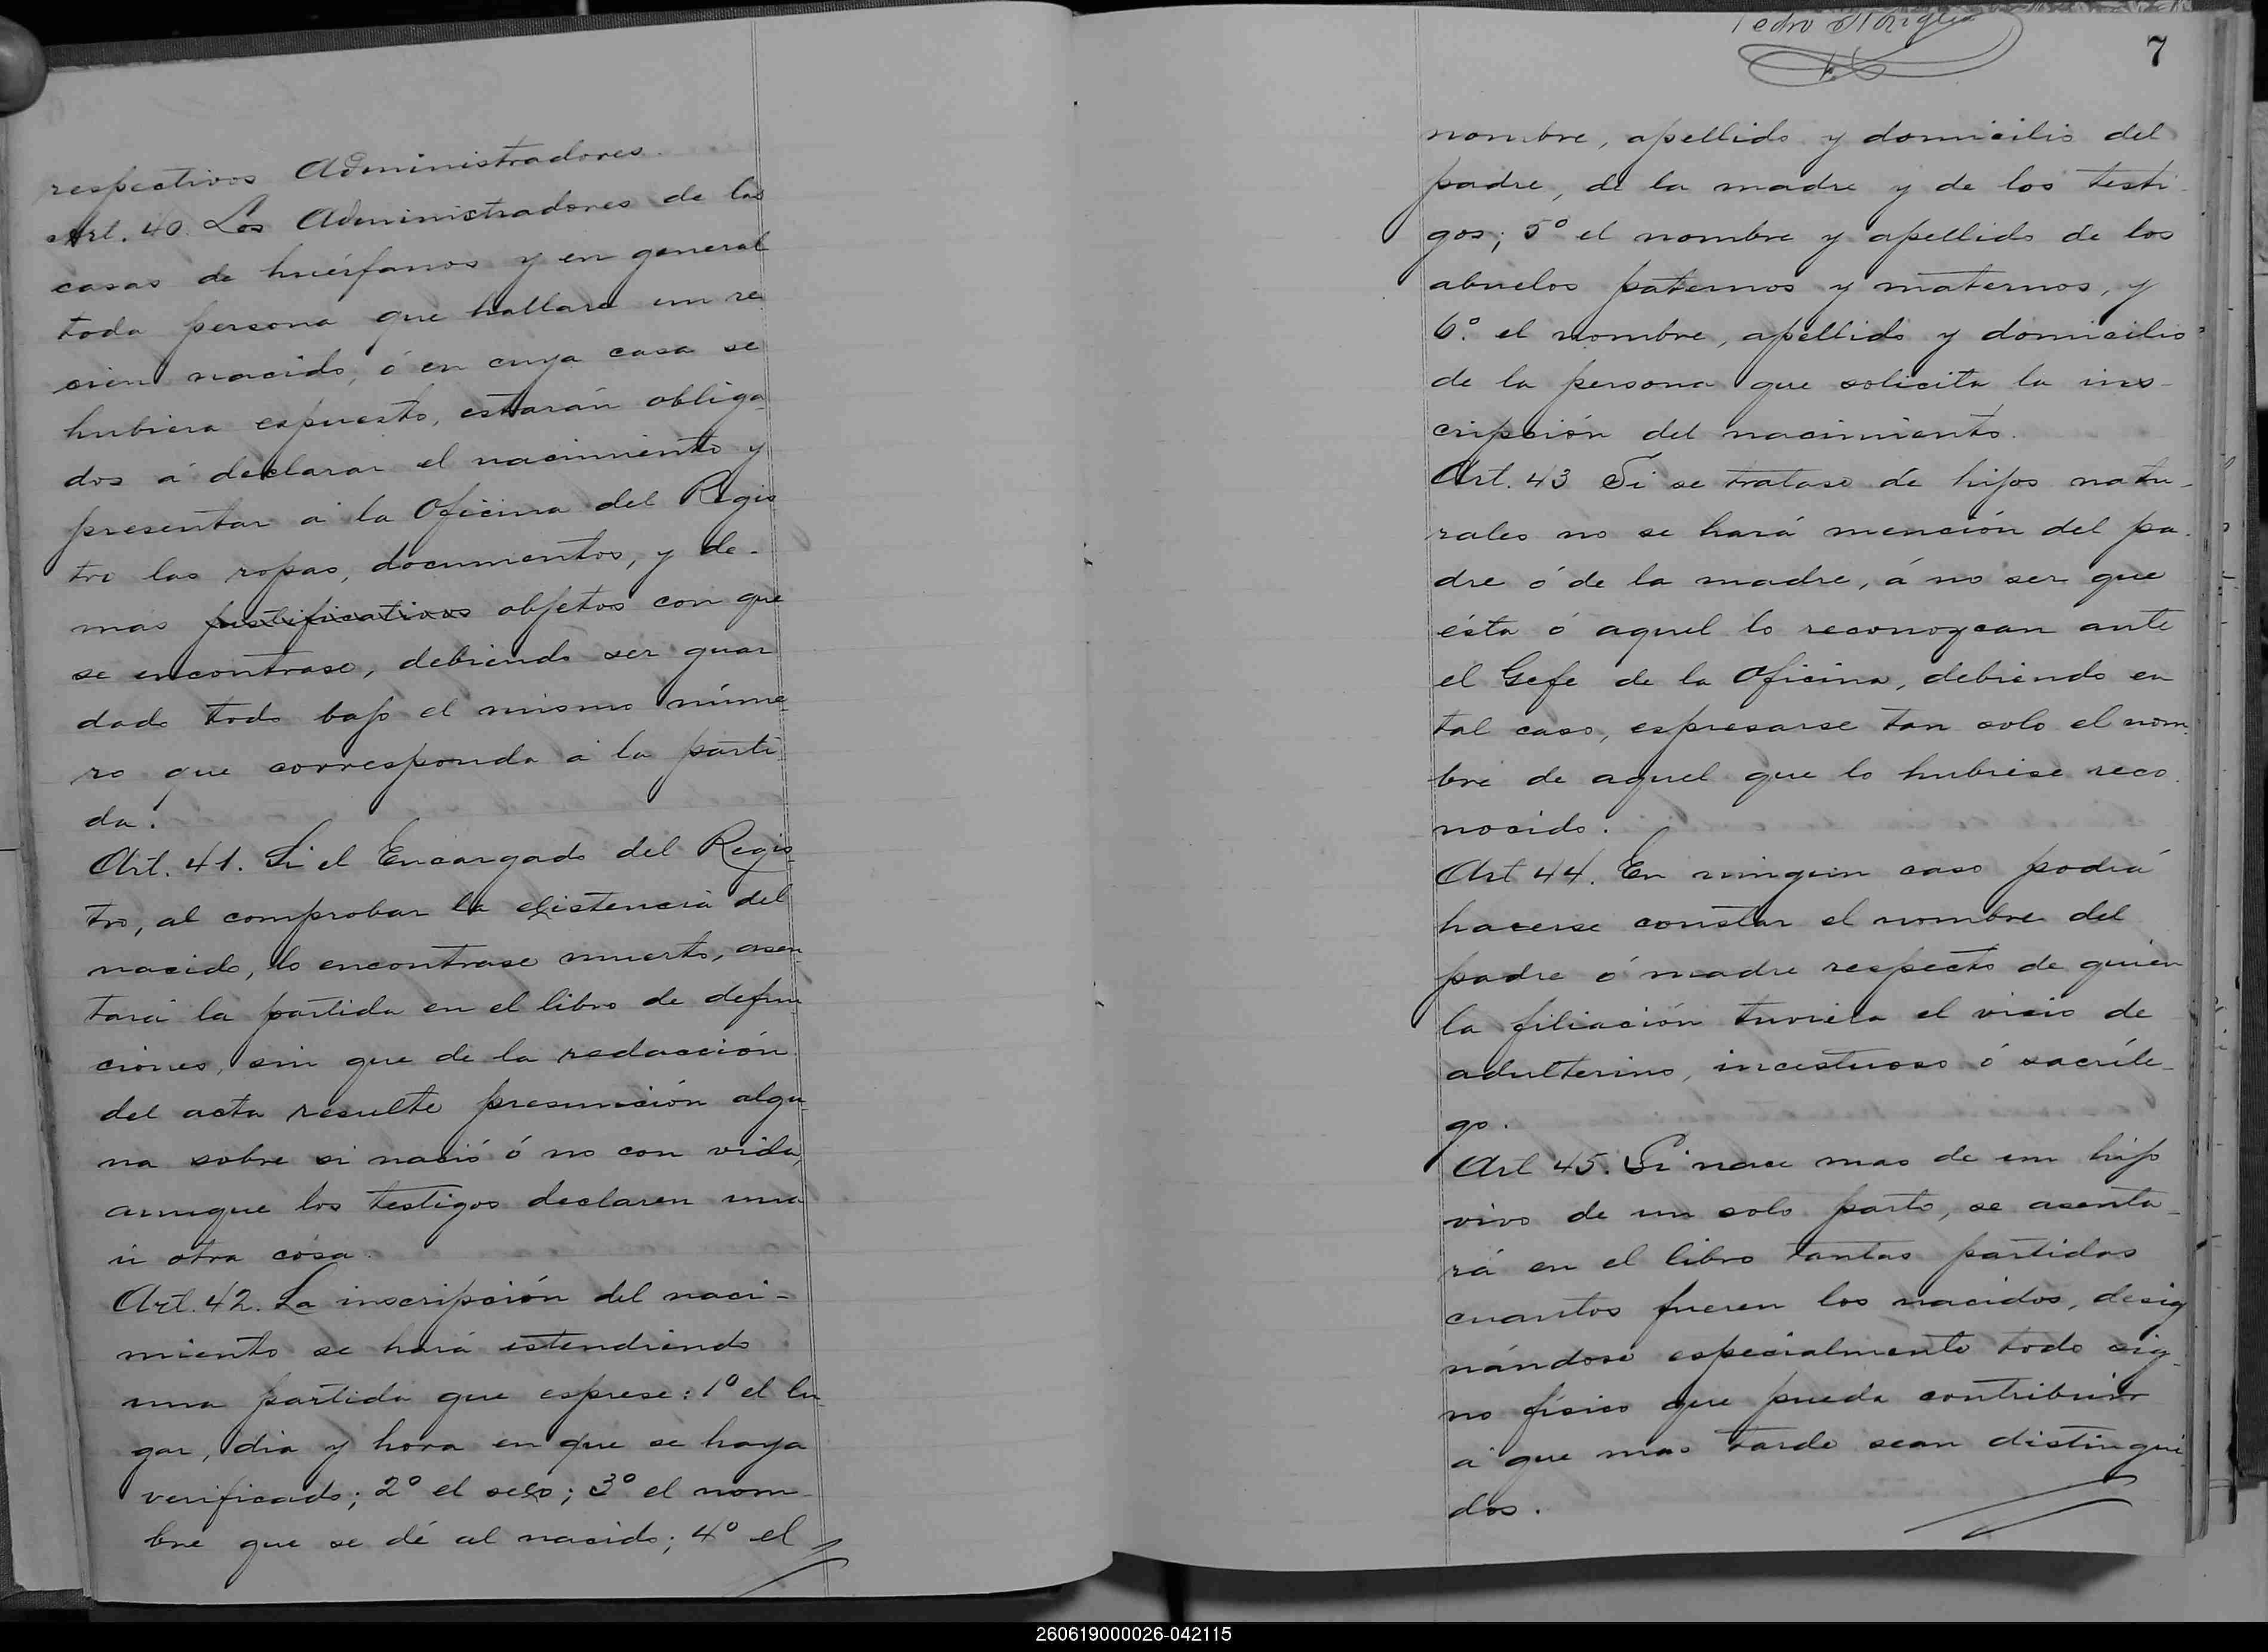 respectivos Administradores.
Art. 40. Los Administradores de las
casas de huérfanos y en general
toda persona que hallare un re
cien nacido, ó en cuya casa se
hubiera espuesto, estarán obliga
dos á declarar el nacimiento y
presentar á la Oficina del Regis
tro las ropas, documentos, y de-
mas justificativos objetos con que
se encontrase, debiendo ser guar
dado todo bajo el mismo núme
ro que corresponda á la parti
da.
Art. 41. Si el Encargado del Regis-
tro, al comprobar la existencia del
nacido, lo encontrase muerto, asen
tará la partida en el libro de defun
ciones, sin que de la redacción
del acta resulte presunción algu-
na sobre si nació ó no con vida,
aunque los testigos declaren una
ú otra cosa.
Art. 42. La inscripción del naci-
miento se hará estendiendo
una partida que esprese: 1º el lu
gar, dia y hora en que se haya
verificado; 2º el sexo; 3º el nom-
bre que se dé al nacido; 4º el
Pedro
7
nombre, apellido y domicilio del
padre, de la madre y de los testi-
gos; 5º el nombre y apellido de los
abuelos paternos y maternos, y
6º. el nombre, apellido y domicilio
de la persona que solicita la ins-
cripción del nacimiento.
Art. 43 Si se tratase de hijos natu-
rales no se hará mención del pa-
dre ó de la madre, á no ser que
ésta ó aquel lo reconozcan ante
el Gefe de la Oficina, debiendo en
tal caso, espresarse tan solo el nom-
bre de aquel que lo hubiese reco-
nocido.
Art 44. En ningun caso podrá
hacerse constar el nombre del
padre ó madre respecto de quien
la filiación tuviera el vicio de
adulterino, incestuoso ó sacríle-
go.
Art 45. Si nace mas de un hijo
vivo de un solo parto, se asenta-
rá en el libro tantas partidas
cuantos fueren los nacidos, desig
nándose especialmente todo sig-
no físico que pueda contribuir
á que mas tarde sean distingui-
dos.
260619000026-042115